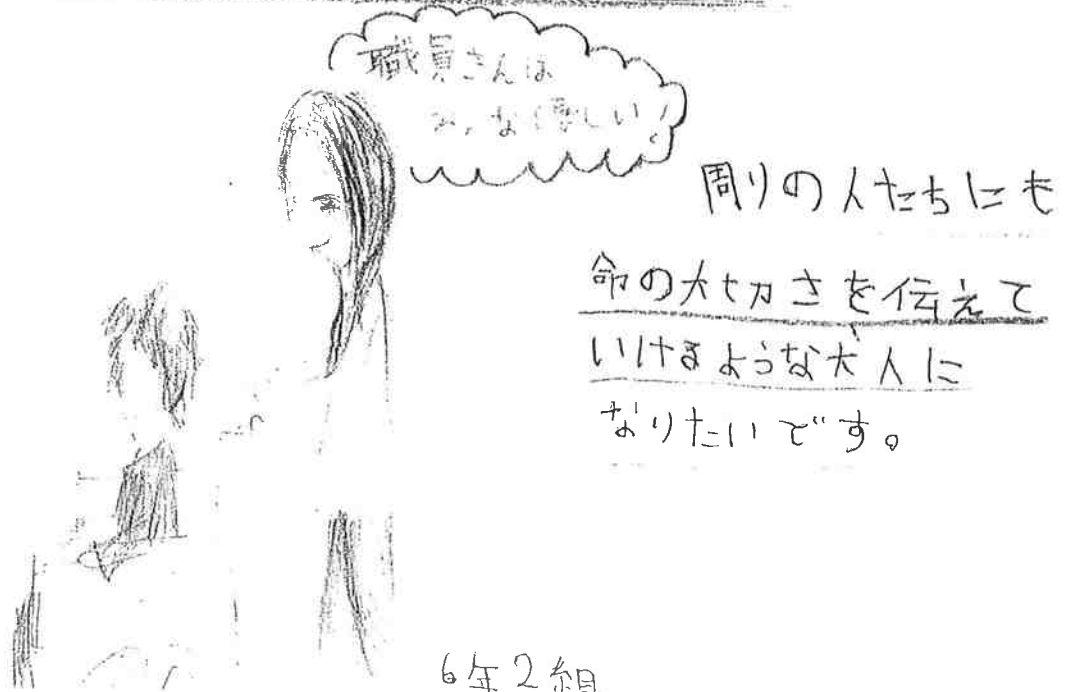 職員さんは
みんな優しい!
周りの人たちにも
命の大切さを伝えて
いけるような大人に
なりたいです。
6年2組